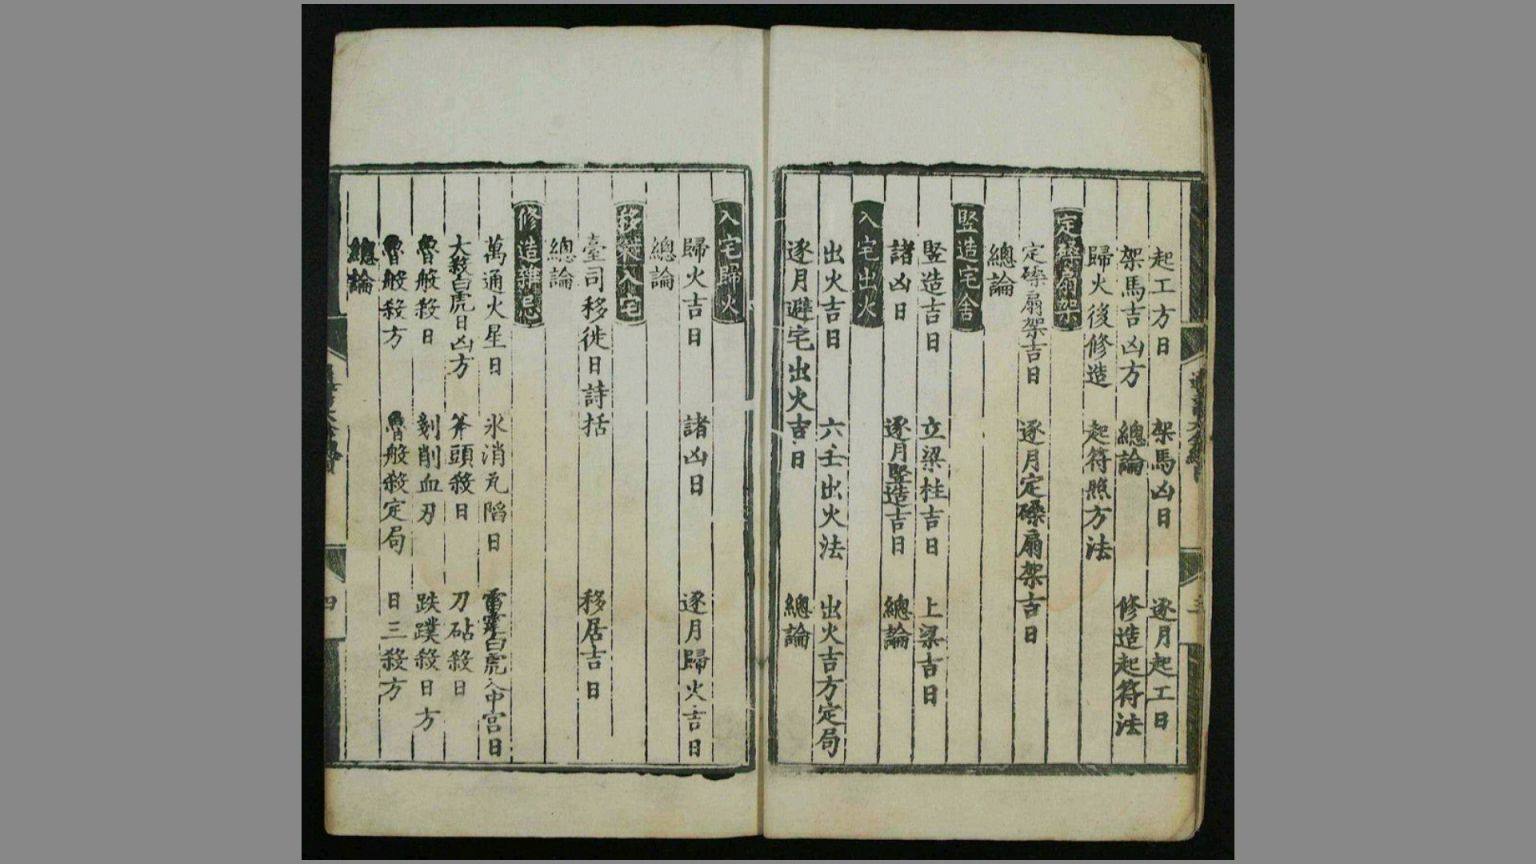 起工方日 架馬凶日 逐月起工日
架馬吉凶方 總論 修造起符法
歸火後修造 起符照方法
定磉扇架
定磉扇架吉日 逐月定磉扇架吉日
總論
竪造宅舍
竪造吉日 立梁柱吉日 上梁吉日
諸凶日 逐月竪造吉日 總論
入宅出火
出火吉日 六壬出火法 出火吉方定局
逐月避宅出火吉日 總論
入宅歸火
歸火吉日 諸凶日 逐月歸火吉日
總論
移徙入宅
臺司移徙日詩括 移居吉日
總論
修造雜忌
萬通火星日 氷消瓦陷日 雷霆白虎入中宮日
大殺白虎日凶方 斧頭殺日 刀砧殺日
魯般殺日 刻削血刃 跌蹼殺日方
魯般殺方 魯般殺定局 日三殺方
總論
四